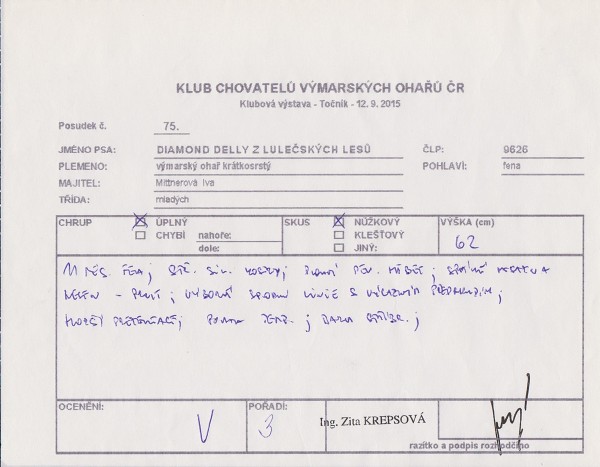 KLUB CHOVATELŮ VÝMARSKÝCH OHAŘŮ ČR
Klubová výstava - Točník - 12. 9. 2015
Posudek č. 75.
JMÉNO PSA: DIAMOND DELLY Z LULEČSKÝCH LESŮ ČLP: 9626
PLEMENO: výmarský ohař krátkosrstý POHLAVÍ: fena
MAJITEL: Mittnerová Iva
TŘÍDA: mladých
CHRUP ÚPLNÝ SKUS NŮŽKOVÝ VÝŠKA (cm)
CHYBÍ nahoře: KLEŠŤOVÝ 62
dole: JINÝ:
11 MĚS. FENA; STŘ. SIL. KOSTRY; HŘBET;
- ; VÝBORNÁ SPODNÍ LINIE S VÝRAZNÝM PŘEDHRUDÍM;
; POVAHA TEMP.; BARVA STŘÍBR.;
OCENĚNÍ: V POŘADÍ: 3 Ing. Zita KREPSOVÁ
razítko a podpis rozhodčího